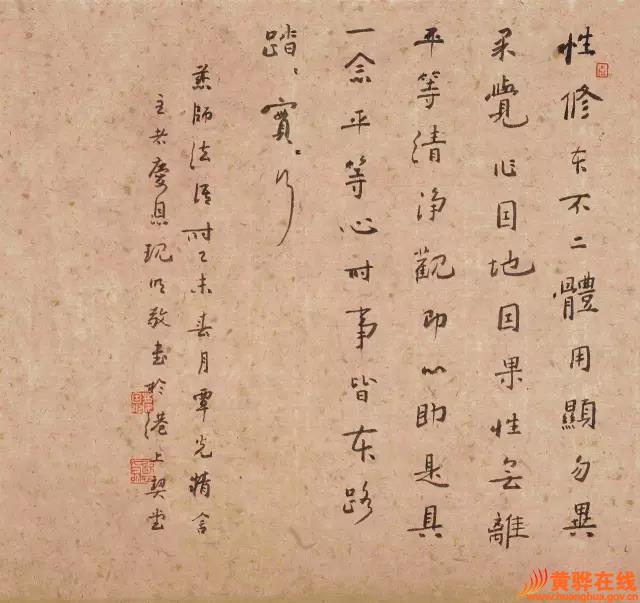 性修本不二體用顯勿異
覺因地因果性無離
平等清淨觀即心即是具
一念平等心時事皆本路
踏〻實〻行
師法語時乙未春月覃光精舍
主慶恩現敬書於港上契堂
黄骅在线
www.huanghua.gov.cn